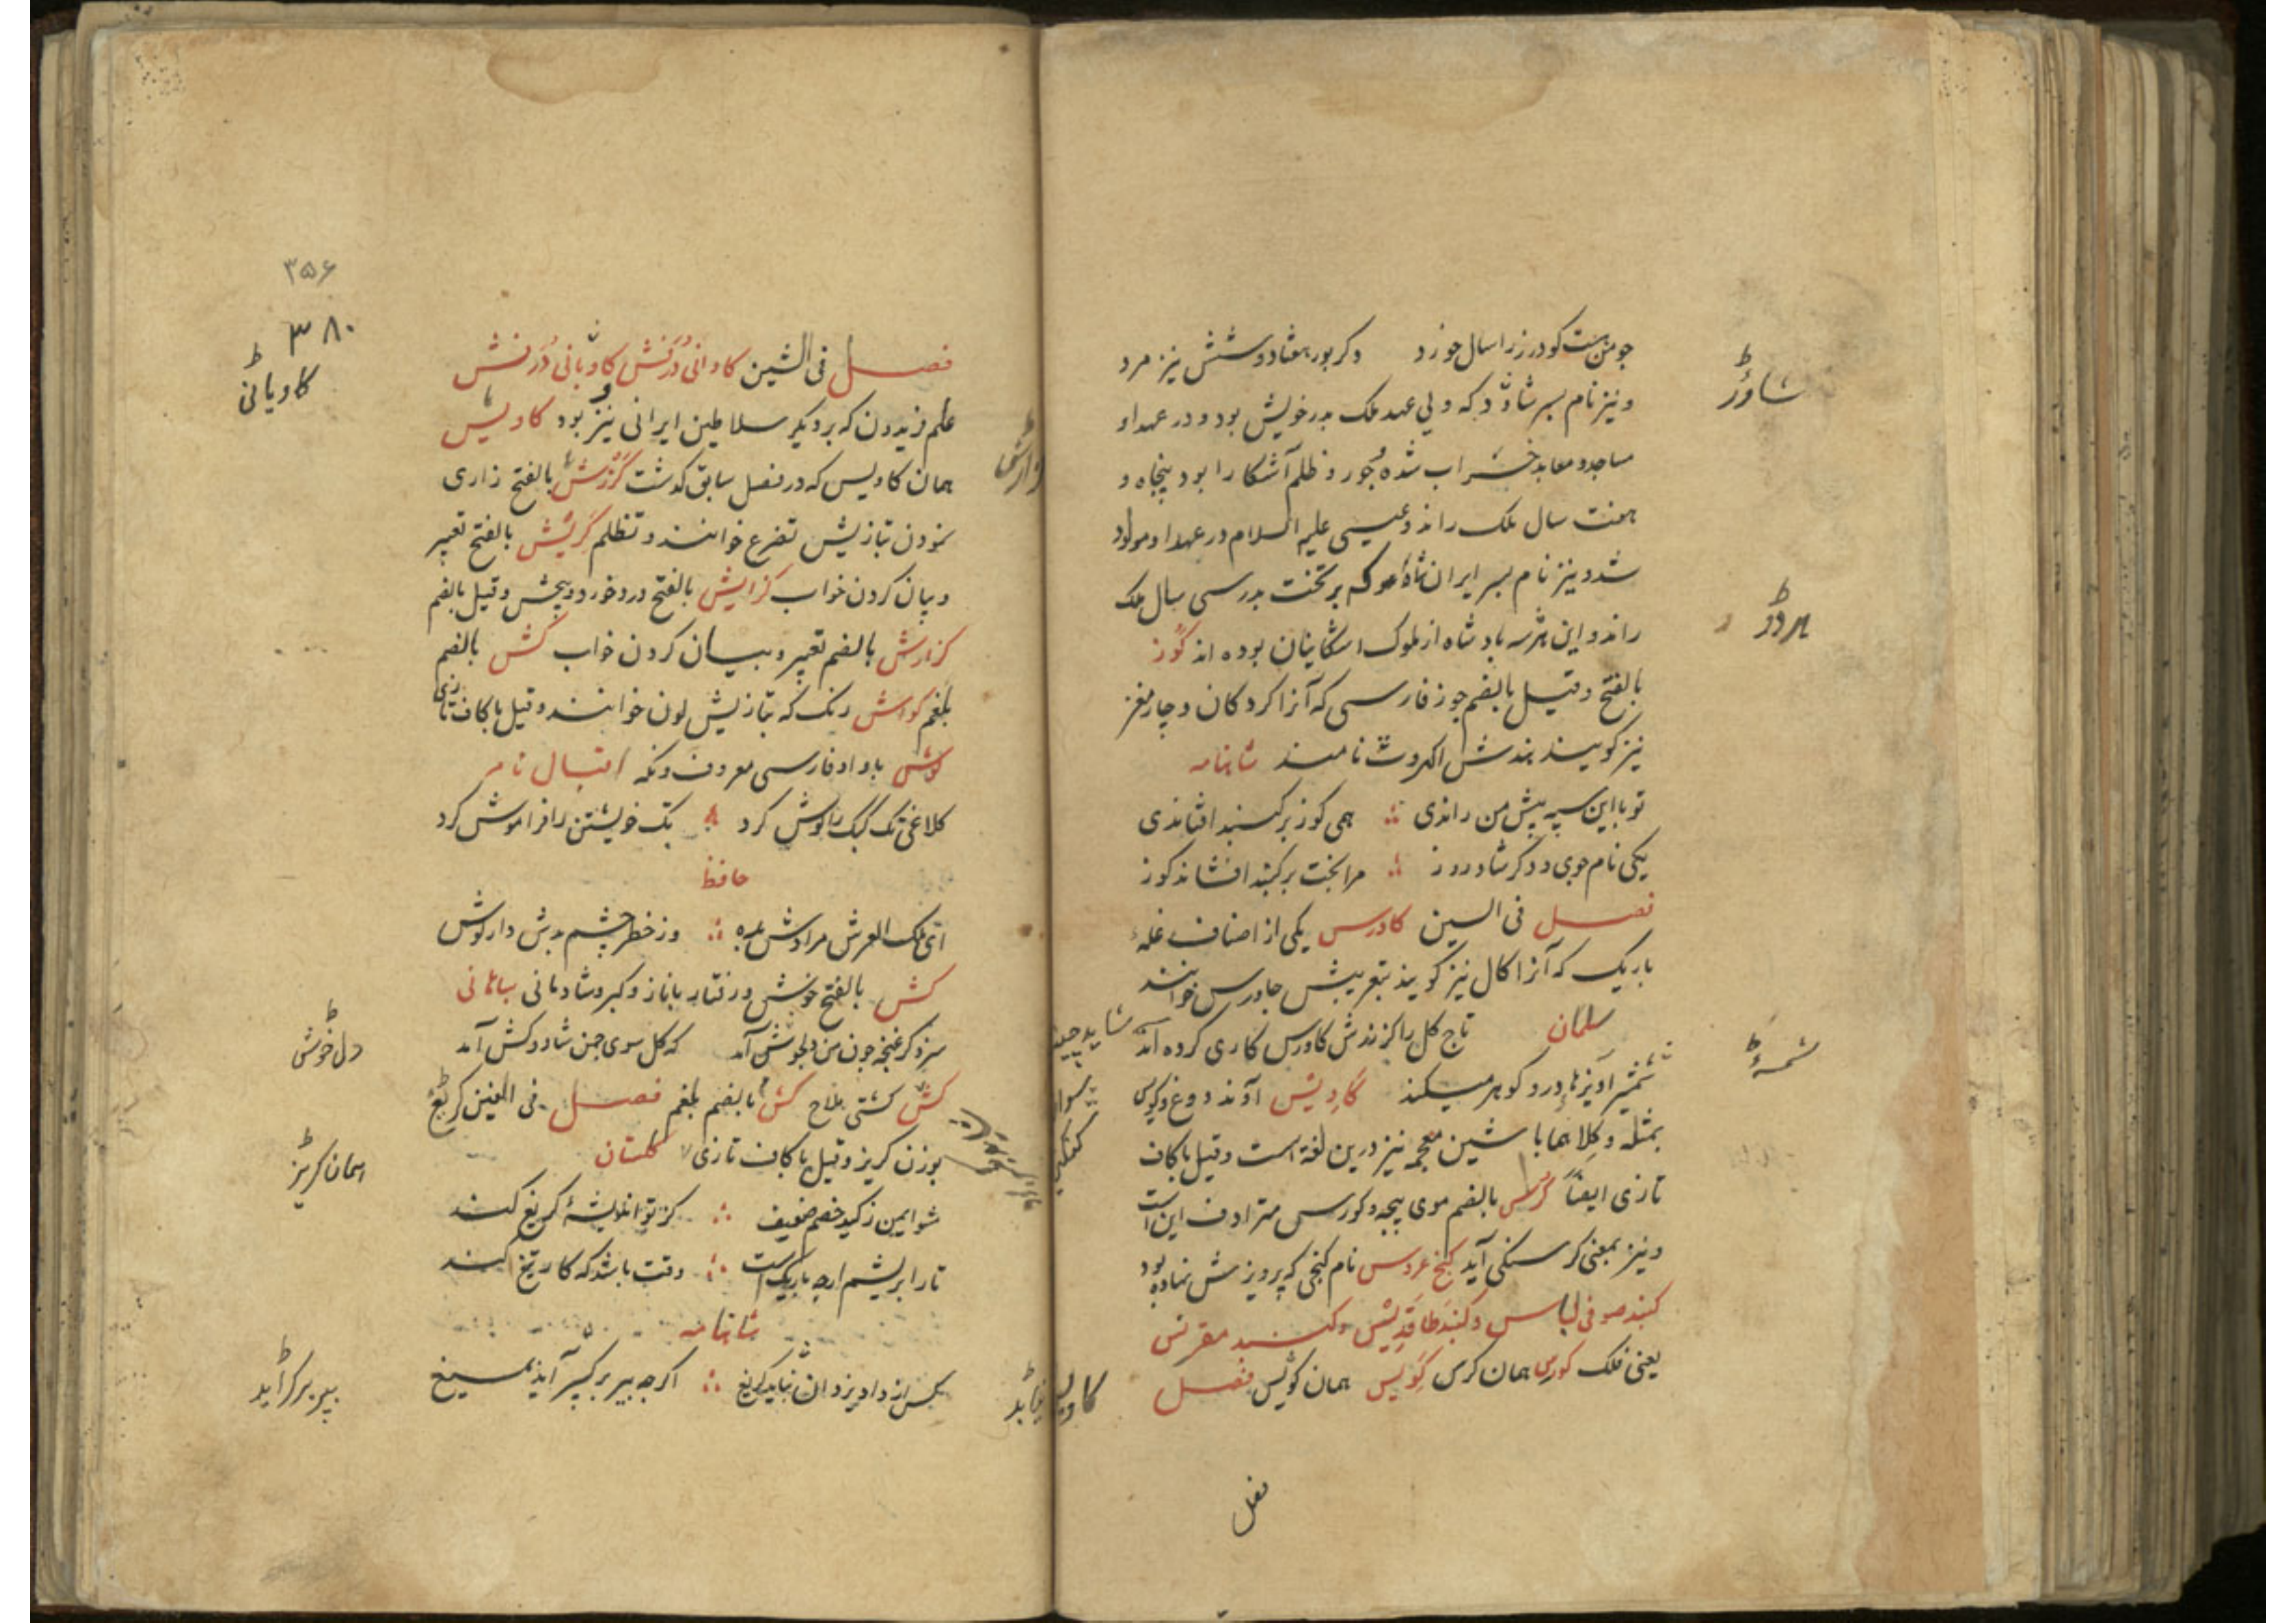 جو من هست کودرز را سال خورد دکر پور هفتاد و شش نیز مرد
و نیز نام پسر شاوور که ولی عهد ملک پدر خویش بود و در عهد او
مساجد و معابد خراب شده جور و ظلم آشکارا بود پنجاه و
هفت سال ملک راند و عیسی علیه السلام در عهد او مولود
شد و نیز نام پسر ایران شاه که بر تخت پدر سی سال ملک
راند و این هر سه بادشاه از ملوک اشکانیان بوده اند کوز
بالفتح و قیل بالضم جوز فارسی که آنرا کردکان و چارمغز
نیز کویند هندش اکهروت نامند شاهنامه
تو با این سپه پیش من راندی همی کوز بر کنبد افشاندی
یکی نام جوی و دکر شاد روز مرا بخت بر کنبد افشاند کوز
فصل فی السین کاورس یکی از اصناف غله
باریک که آنرا کال نیز کویند بتعریبش جاورس خوانند
سلمان تاج کل را کز زرش کاورس کاری کرده اند
کاویس آوند دوغ
بمثله و کلاهما با شین معجمه نیز درین لغة است و قیل با کاف
تازی ایضاً کرس بالضم موی پیچه و کورس مترادف این است
و نیز بمعنی کرسنکی آید کنج عروس نام کنجی که پرویزش نهاده بود
کنبد صوفی لباس و کنبد طاقدیس و کنبد مقرنس
یعنی فلک کورس همان کرس کویس همان کویس فصل
فصل
شاوور
هردو
شمسه
شاید چنین
فصل فی الشین کاوانی درفش کاویانی درفش
علم فریدون که بر دیکر سلاطین ایرانی نیز بود کاویش
همان کاویس که در فصل سابق کذشت کرزش بالفتح زاری
نمودن تبازیش تضرع خوانند و تظلم کریش بالفتح تعبیر
و بیان کردن خواب کزایش بالفتح درخورد و پیچش و قیل بالضم
کزارش بالضم تعبیر و بیان کردن خواب کش بالضم
بلغم کواش رنک که تبازیش لون خوانند و قیل با کاف تازی
کوش با واو فارسی معروف و نکه اقبال نامه
کلاغی تک کبک را کوش کرد تک خویشتن را فراموش کرد
حافظ
ای ملک العرش مرادش بده وز خطر چشم بدش دار کوش
کش بالفتح خوش و رفتار باناز و کبر و شادمانی سامانی
سزد کر غنچه چون من دلخوش آمد که کل سوی چمن شاد و کش آمد
کش کشتی ملاح کش بالضم بلغم فصل فی الغین کریغ
بوزن کریز و قیل با کاف تازی کلستان
مشو ایمن ز کید خصم ضعیف کز تو اندیشهٔ کریغ کند
تار ابریشم ارچه باریک است وقت باشد که کار تیغ کند
شاهنامه
بکس از داد یزدان نیابد کریغ اکرچه بپر برآید بمیغ
۳۵۶
۳۸۰
کاویانی
دل خوشی
همان کریز
بپر برآید